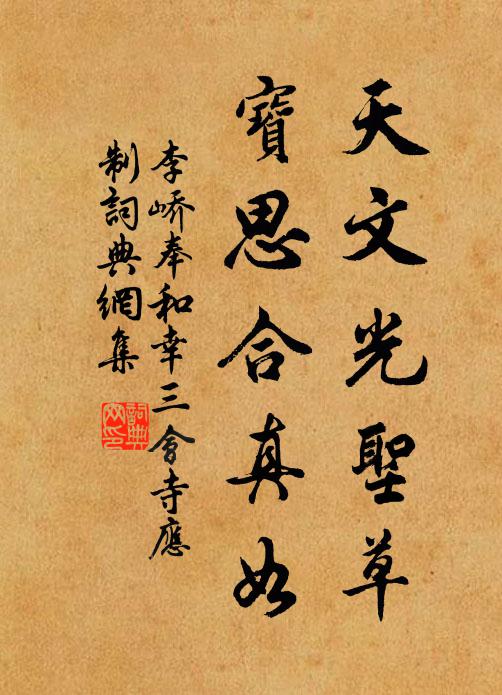 天文光聖草
寶思合真如
李嶠奉和幸三會寺應
制詞典網集
詞典网印